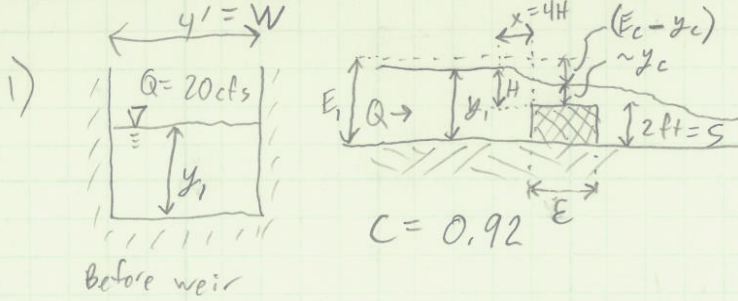 1)
4' = W
Q = 20cfs
y₁
Before weir
x = 4H
(E_c - y_c)
~y_c
E₁
Q →
y₁
H
2 ft = S
ε
C = 0.92